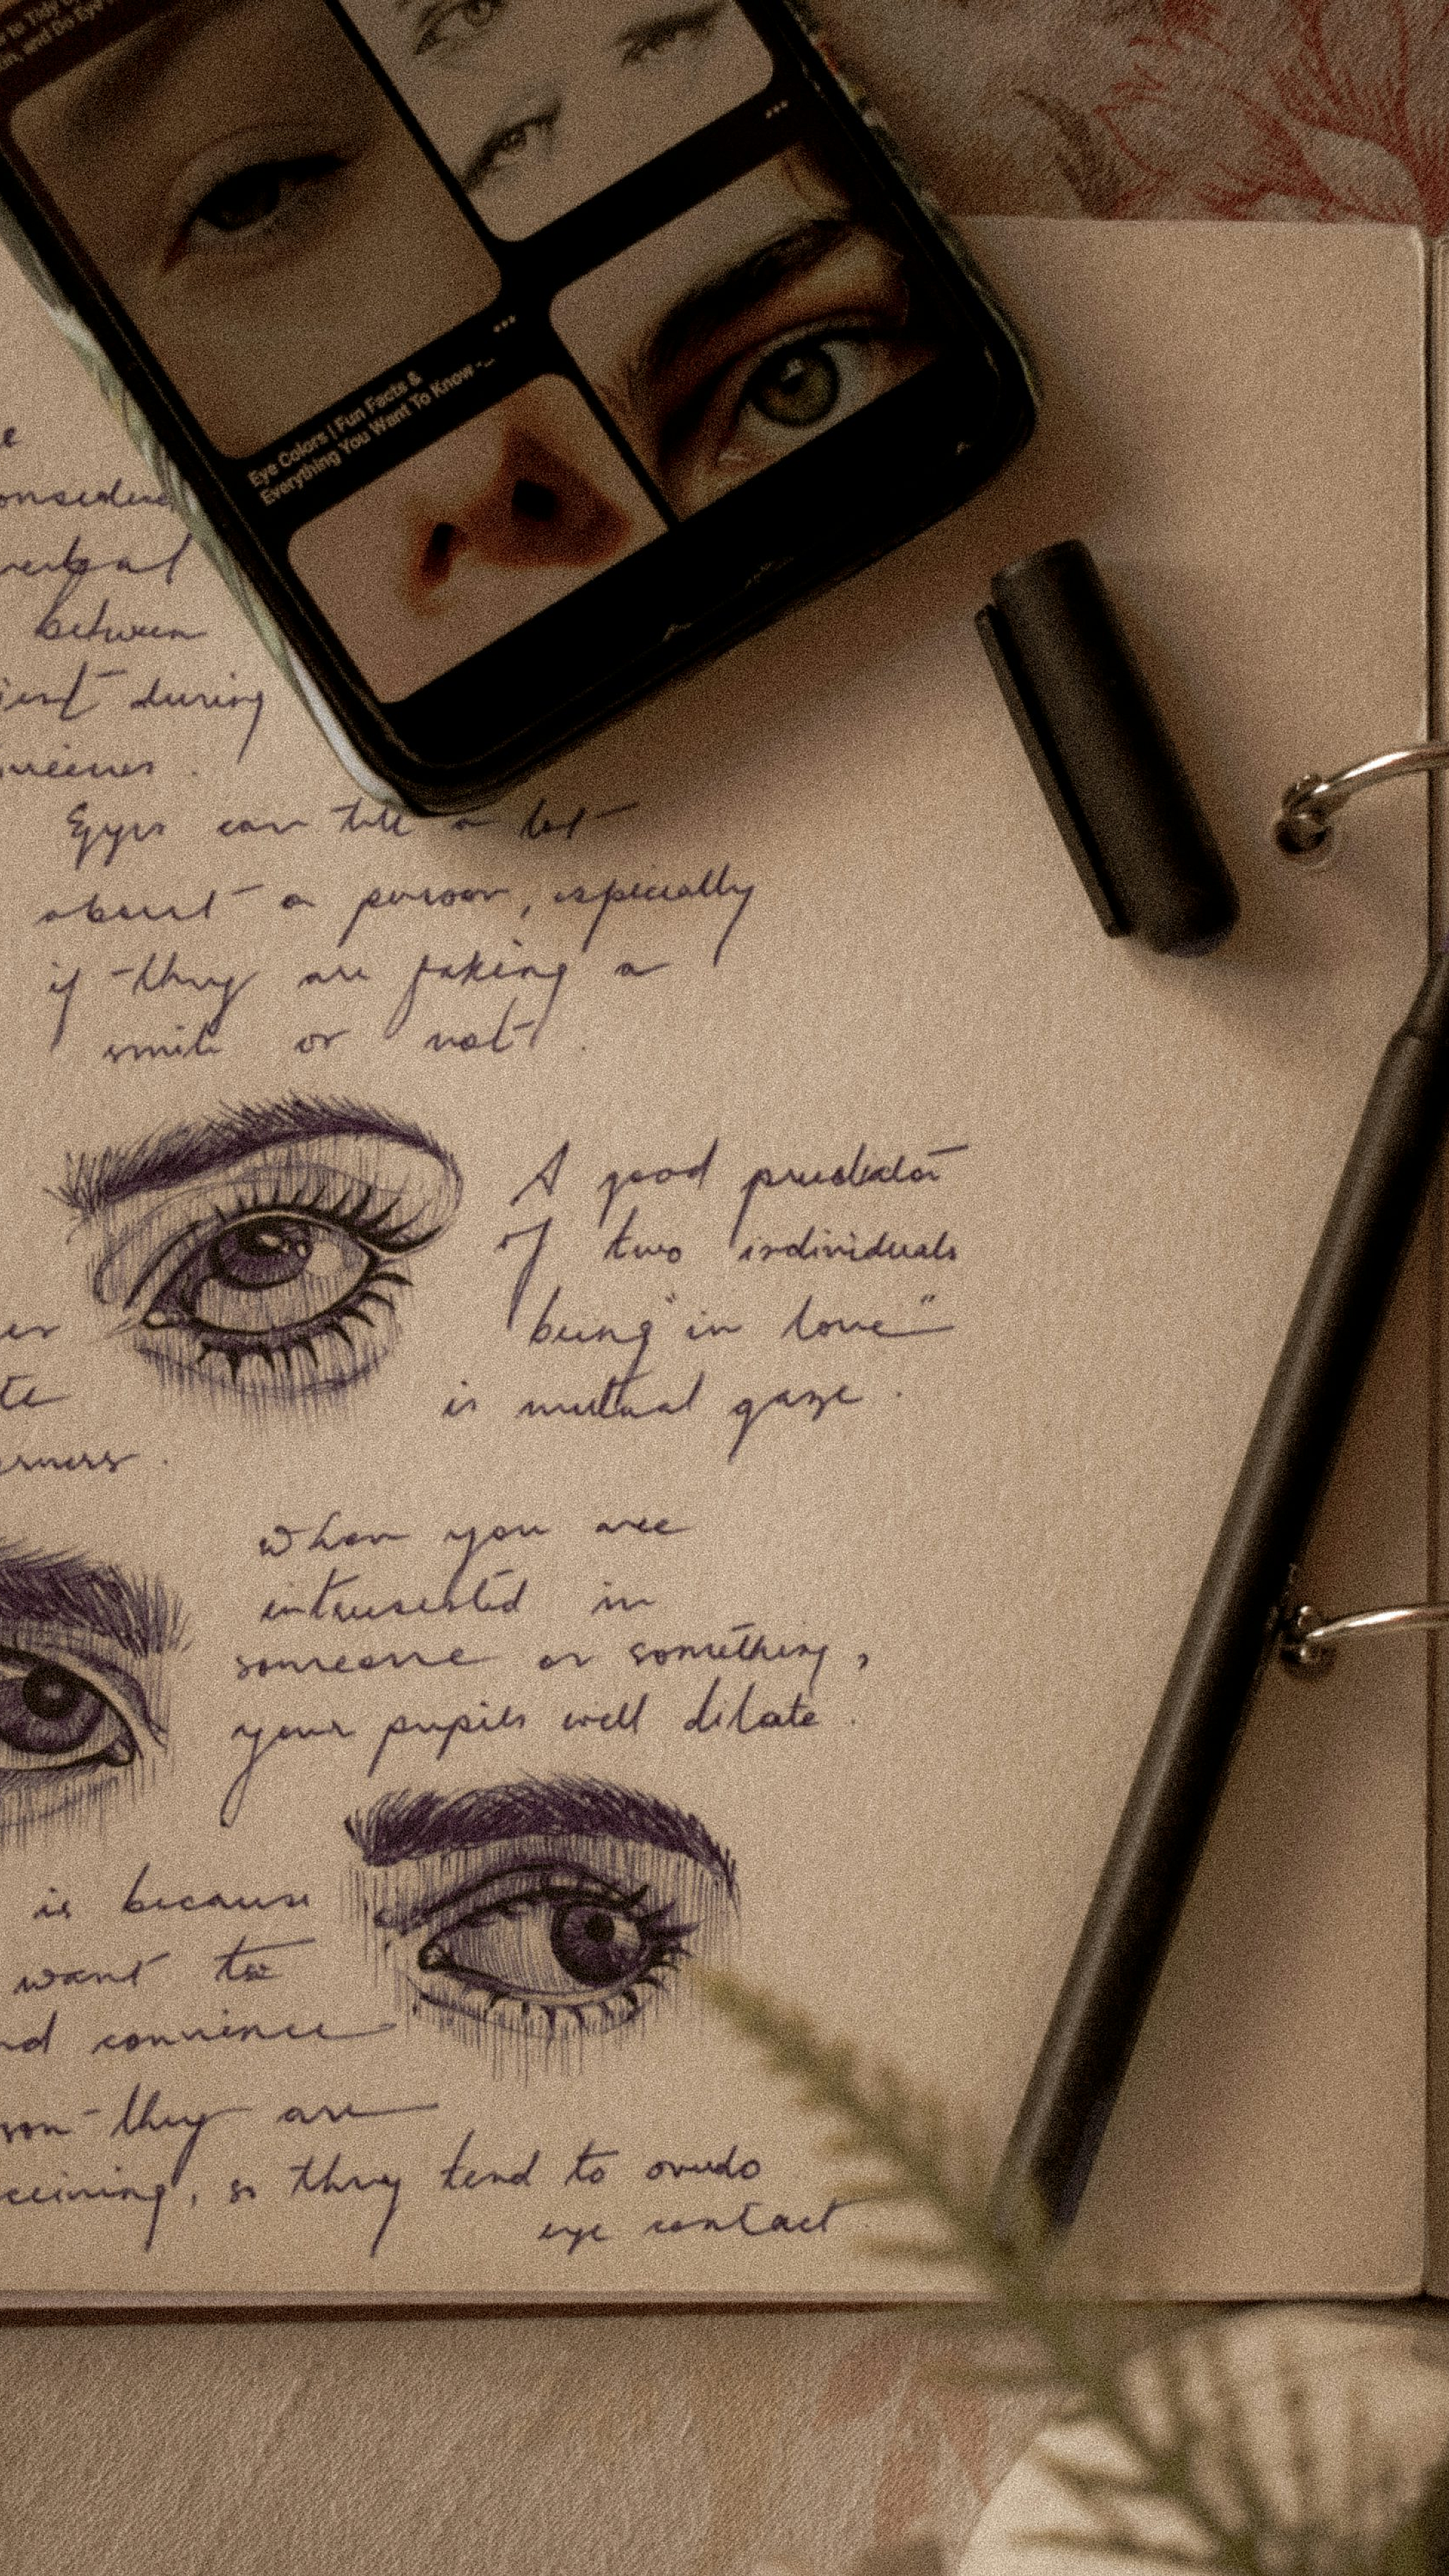 to Tidy
and Do Eye
Eye Colors | Fun Facts &
Everything You Want To Know -...
e
between
during
Eyes can tell a lot
about a person, especially
if they are faking a
smile or not.
A good predictor
of two individuals
being "in love"
is mutual gaze.
er
te
When you are
in
someone or something,
your pupils well dilate.
is because
want to
nd convince
they are
, so they tend to ovudo
eye contact